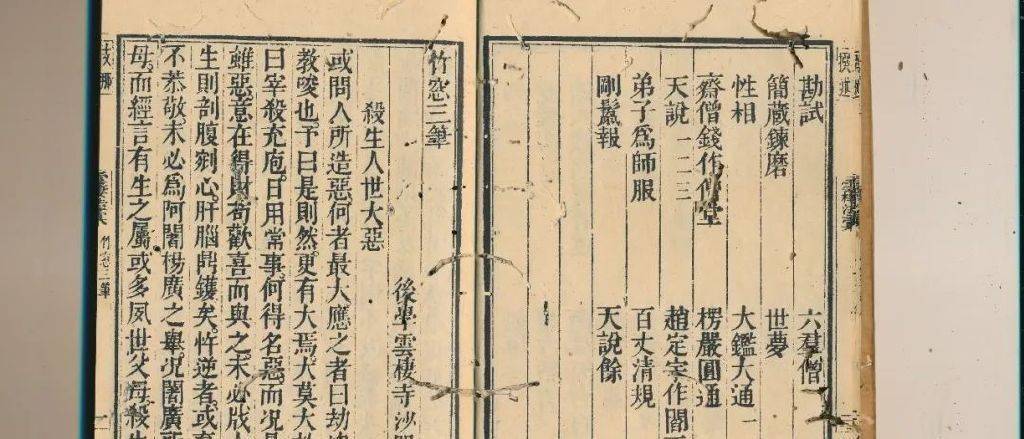 勘試 六羣僧
簡藏鍊磨 世夢
性相 大鑑大通 一
齋僧錢作僧堂 楞嚴圓通
天說 一 二 三 趙定宇作閻
弟子爲師服 百丈清規
剛鬣報 天說餘
竹窓三筆
後學雲棲寺沙
殺生人世大惡
或問人所造惡何者最大應之者曰劫
教唆也予曰是則然更有大焉大莫大
曰宰殺充庖日用常事何得名惡而況
雖惡意在得財苟歡喜而與之未必戕
生則剖腹剜心肝腦鼎鑊矣忤逆者或
不恭敬未必爲阿闍楊廣之舉況闍廣
母而經言有生之屬或多夙世父母殺
竹窓三筆